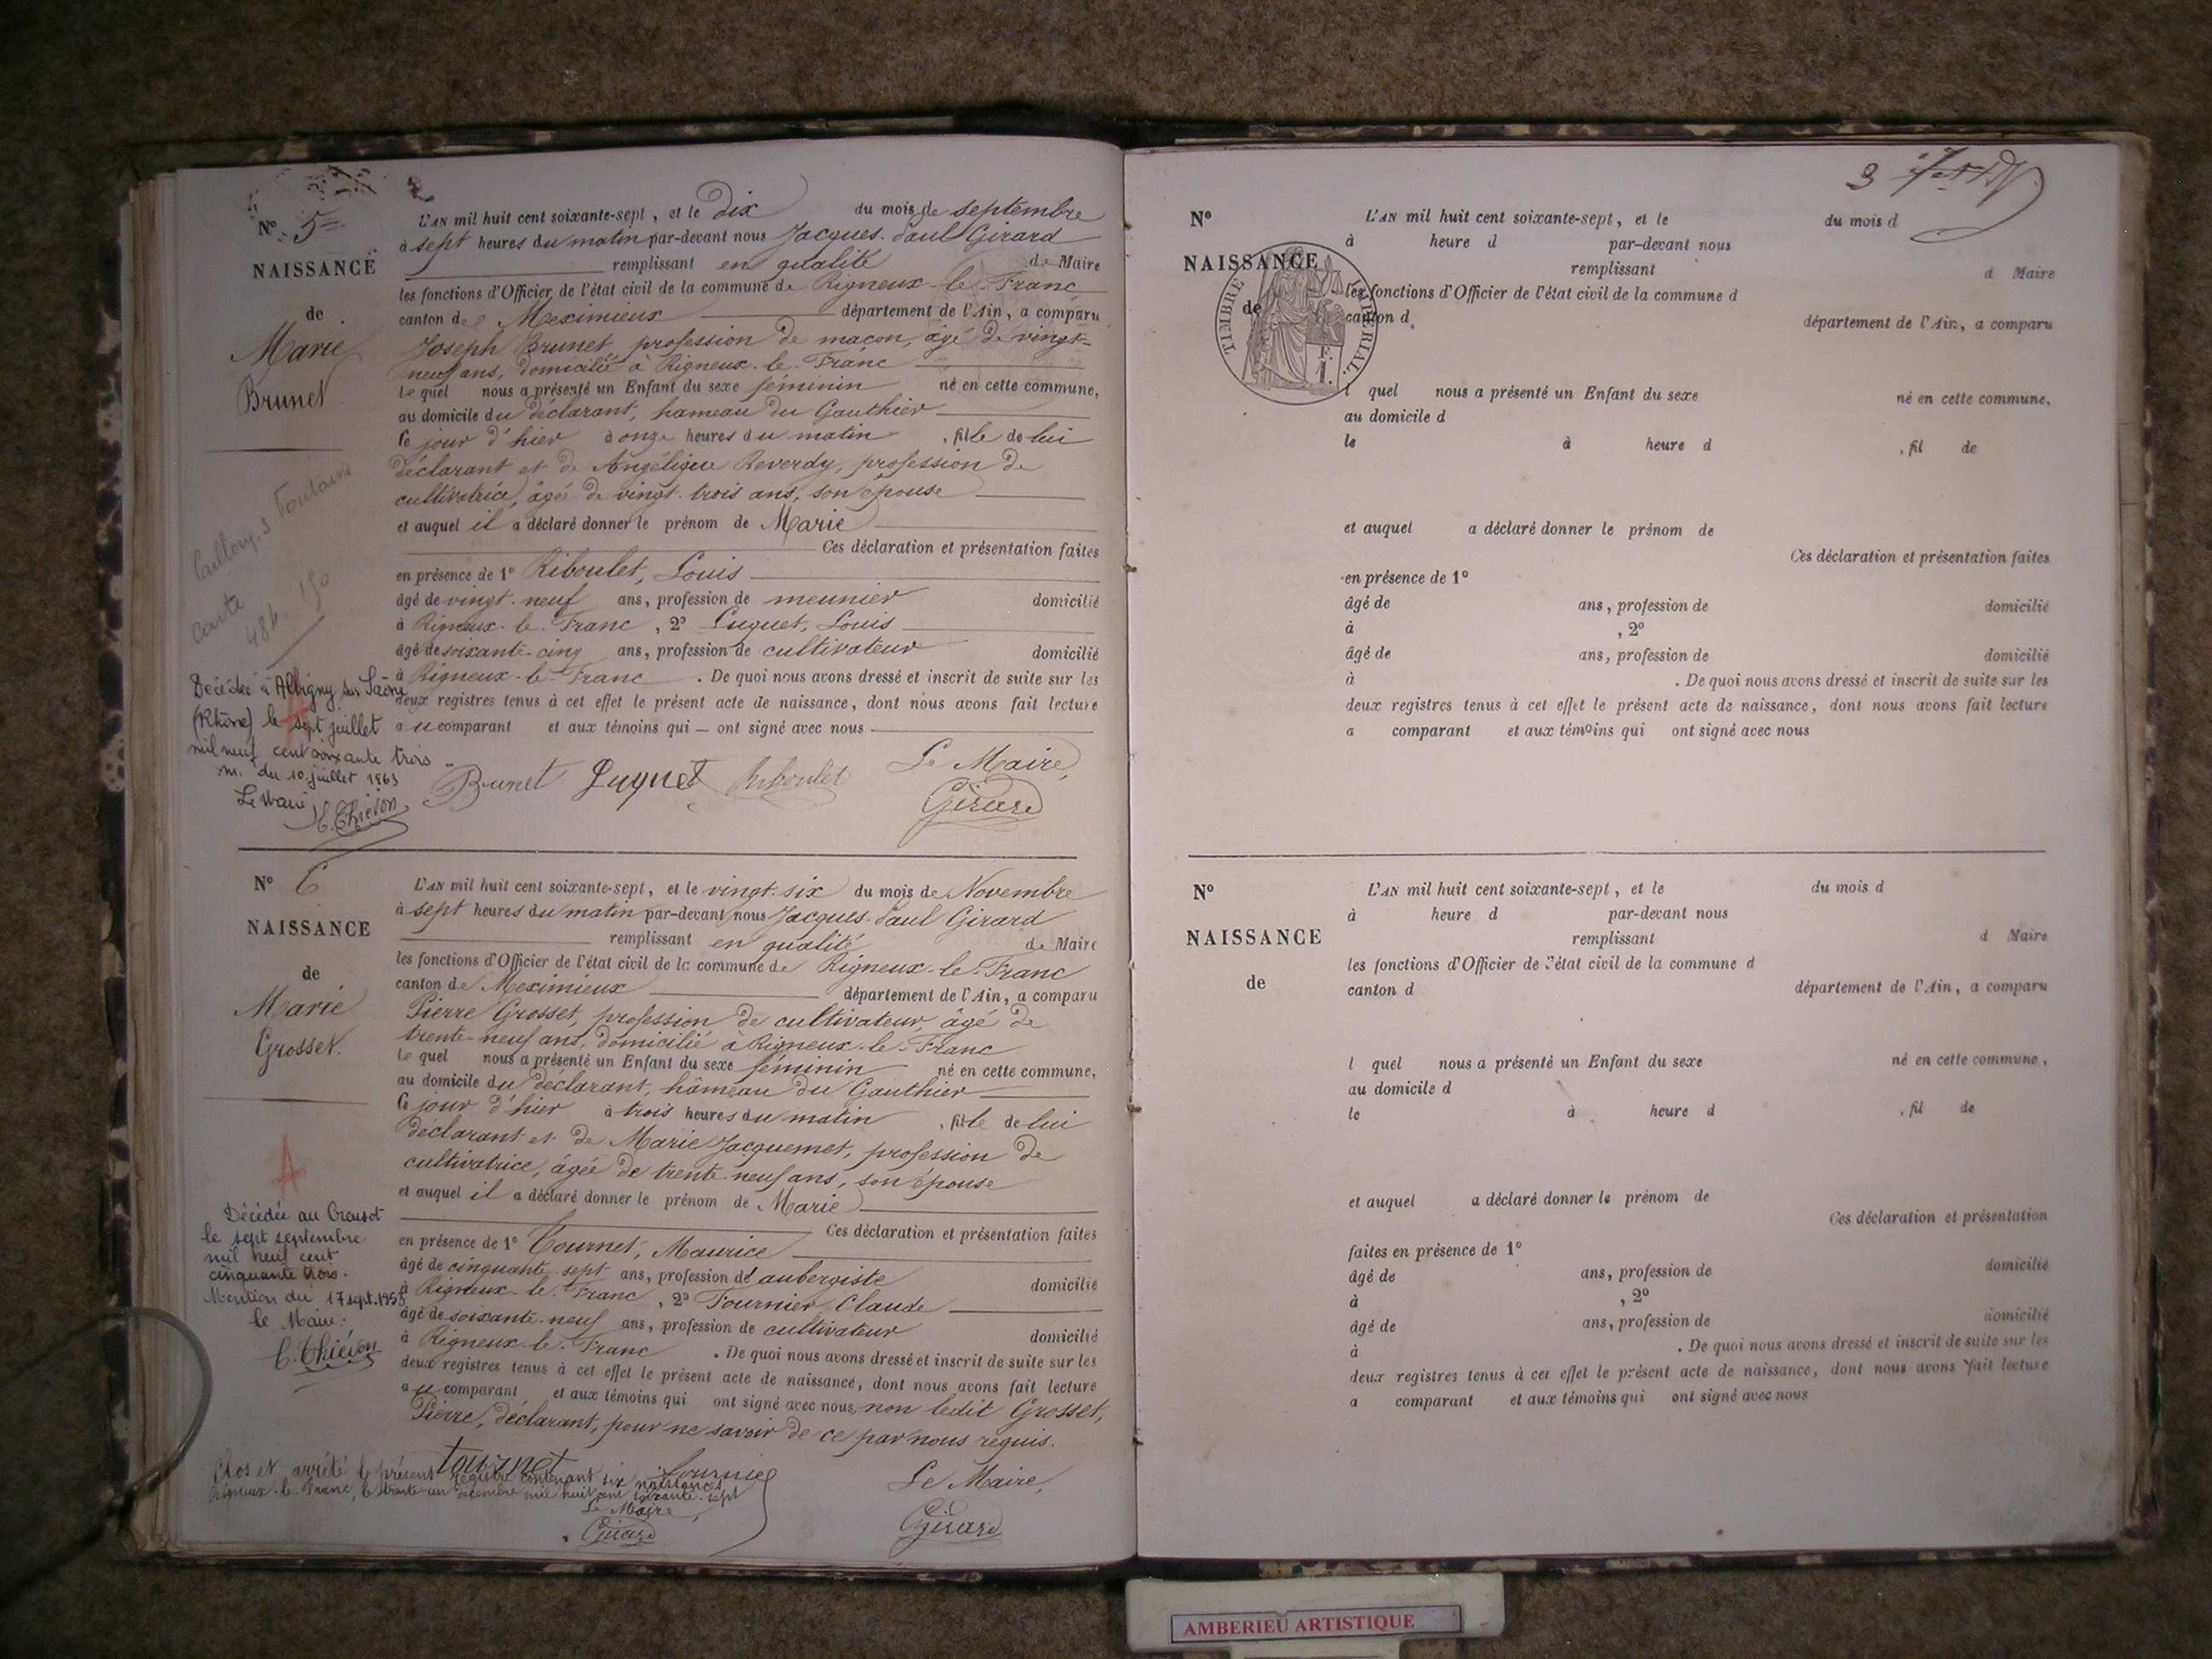 2
N° 5
NAISSANCE
de
Marie
Brunet
L'AN mil huit cent soixante-sept, et le dix du mois de septembre
à sept heures du matin par-devant nous Jacques-Paul Girard
remplissant en qualité de Maire
les fonctions d'Officier de l'état civil de la commune de Rigneux-le-Franc
canton de Meximieux département de l'Ain, a comparu
Joseph Brunet, profession de maçon, âgé de vingt-
neuf ans, domicilié à Rigneux-le-Franc
lequel nous a présenté un Enfant du sexe féminin né en cette commune,
au domicile du déclarant, hameau du Gauthier
le jour d'hier à onze heures du matin, fille de lui
déclarant et de Angélique Reverdy, profession de
cultivatrice, âgée de vingt-trois ans, son épouse
et auquel il a déclaré donner le prénom de Marie
Ces déclaration et présentation faites
en présence de 1° Riboulet, Louis
âgé de vingt-neuf ans, profession de meunier domicilié
à Rigneux-le-Franc, 2° Luquet, Louis
âgé de soixante-cinq ans, profession de cultivateur domicilié
à Rigneux-le-Franc. De quoi nous avons dressé et inscrit de suite sur les
deux registres tenus à cet effet le présent acte de naissance, dont nous avons fait lecture
au comparant et aux témoins qui — ont signé avec nous
Brunet Luquet Riboulet Le Maire,
Girard
Carte
484 150
Décédée à Albigny sur Saône
(Rhône) le sept juillet
mil neuf cent soixante trois
m. du 10 juillet 1963
Le Maire
C. Thiévon
N° 6
NAISSANCE
de
Marie
Grosset
L'AN mil huit cent soixante-sept, et le vingt-six du mois de Novembre
à sept heures du matin par-devant nous Jacques-Paul Girard
remplissant en qualité de Maire
les fonctions d'Officier de l'état civil de la commune de Rigneux-le-Franc
canton de Meximieux département de l'Ain, a comparu
Pierre Grosset, profession de cultivateur, âgé de
trente-neuf ans, domicilié à Rigneux-le-Franc
lequel nous a présenté un Enfant du sexe féminin né en cette commune,
au domicile du déclarant, hâmeau du Gauthier
le jour d'hier à trois heures du matin, fille de lui
déclarant et de Marie Jacquemet, profession de
cultivatrice, âgée de trente-neuf ans, son épouse
et auquel il a déclaré donner le prénom de Marie
Ces déclaration et présentation faites
en présence de 1° Tournet, Maurice
âgé de cinquante-sept ans, profession d'aubergiste domicilié
à Rigneux-le-Franc, 2° Fournier, Claude
âgé de soixante-neuf ans, profession de cultivateur domicilié
à Rigneux-le-Franc. De quoi nous avons dressé et inscrit de suite sur les
deux registres tenus à cet effet le présent acte de naissance, dont nous avons fait lecture
au comparant et aux témoins qui ont signé avec nous, non ledit Grosset,
Pierre, déclarant, pour ne savoir de ce par nous requis.
tournet fournier Le Maire,
Girard
A
Décédée au Creusot
le sept septembre
mil neuf cent
cinquante trois.
Mention du 17 sept. 1953
le Maire:
C. Thiévon
Clos et arrêté le présent registre contenant six naissances
Rigneux-le-Franc, le trente-un décembre mil huit cent soixante-sept
Le Maire,
Girard
3
N°
NAISSANCE
de
TIMBRE IMPÉRIAL
F.
1.
L'AN mil huit cent soixante-sept, et le du mois d
à heure d par-devant nous
remplissant d Maire
les fonctions d'Officier de l'état civil de la commune d
canton d département de l'Ain, a comparu
l quel nous a présenté un Enfant du sexe né en cette commune,
au domicile d
le à heure d , fil de
et auquel a déclaré donner le prénom de
Ces déclaration et présentation faites
en présence de 1°
âgé de ans, profession de domicilié
à , 2°
âgé de ans, profession de domicilié
à . De quoi nous avons dressé et inscrit de suite sur les
deux registres tenus à cet effet le présent acte de naissance, dont nous avons fait lecture
a comparant et aux témoins qui ont signé avec nous
N°
NAISSANCE
de
L'AN mil huit cent soixante-sept, et le du mois d
à heure d par-devant nous
remplissant d Maire
les fonctions d'Officier de l'état civil de la commune d
canton d département de l'Ain, a comparu
l quel nous a présenté un Enfant du sexe né en cette commune,
au domicile d
le à heure d , fil de
et auquel a déclaré donner le prénom de
Ces déclaration et présentation
faites en présence de 1°
âgé de ans, profession de domicilié
à , 2°
âgé de ans, profession de domicilié
à . De quoi nous avons dressé et inscrit de suite sur les
deux registres tenus à cet effet le présent acte de naissance, dont nous avons fait lecture
a comparant et aux témoins qui ont signé avec nous
AMBERIEU ARTISTIQUE